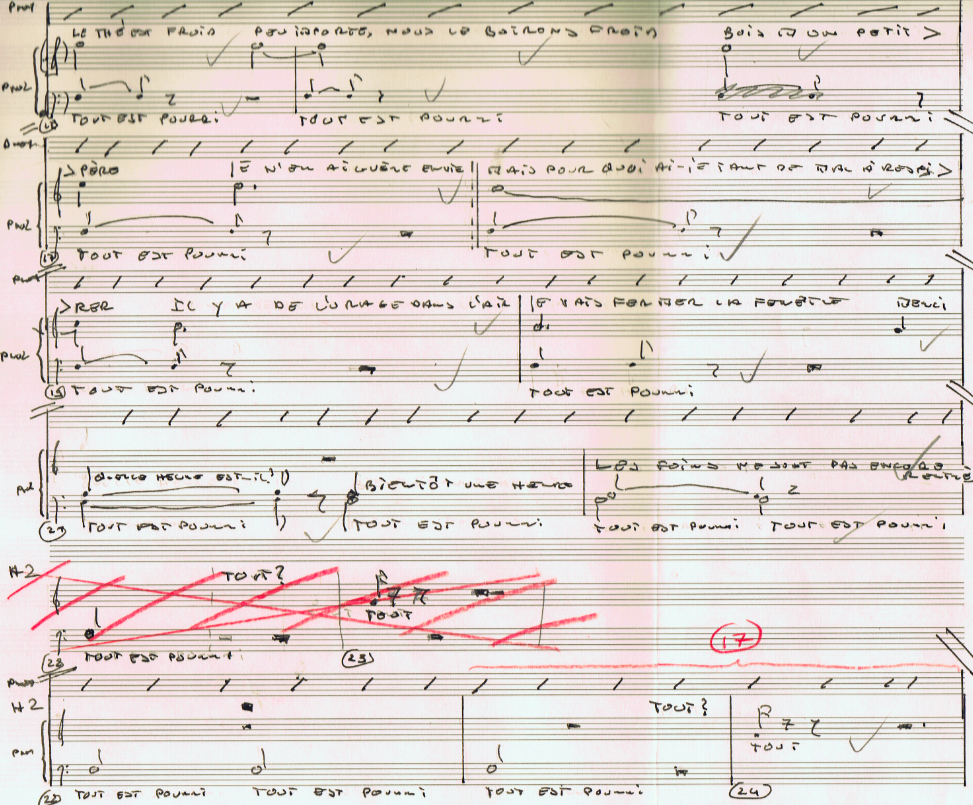 PNO1
LE THÉ EST FROID PEU IMPORTE, NOUS LE BOIRONS FROID BOIS EN UN PETIT >
PNO2
TOUT EST POURRI TOUT EST POURRI TOUT EST POURRI
> PÈRE JE N'EN AI GUÈRE ENVIE MAIS POURQUOI AI-JE TANT DE MAL À RESPI >
PNO2
17 TOUT EST POURRI TOUT EST POURRI
PNO1
> RER IL Y A DE L'ORAGE DANS L'AIR JE VAIS FERMER LA FENÊTRE MERCI
PNO2
TOUT EST POURRI TOUT EST POURRI
QUELLE HEURE EST-IL? BIENTÔT UNE HEURE LES FOINS NE SONT PAS ENCORE
RENTRÉS
21 TOUT EST POURRI TOUT EST POURRI TOUT EST POURRI TOUT EST POURRI
H2 TOUT?
TOUT
22 TOUT EST POURRI 23
17
H2 TOUT?
PNO1 TOUT
22 TOUT EST POURRI TOUT EST POURRI TOUT EST POURRI 24